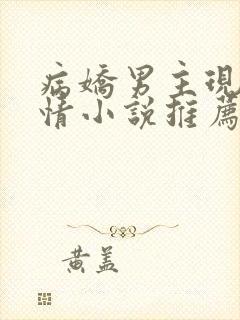 病嬌男主現
情小說推薦
黃蓋